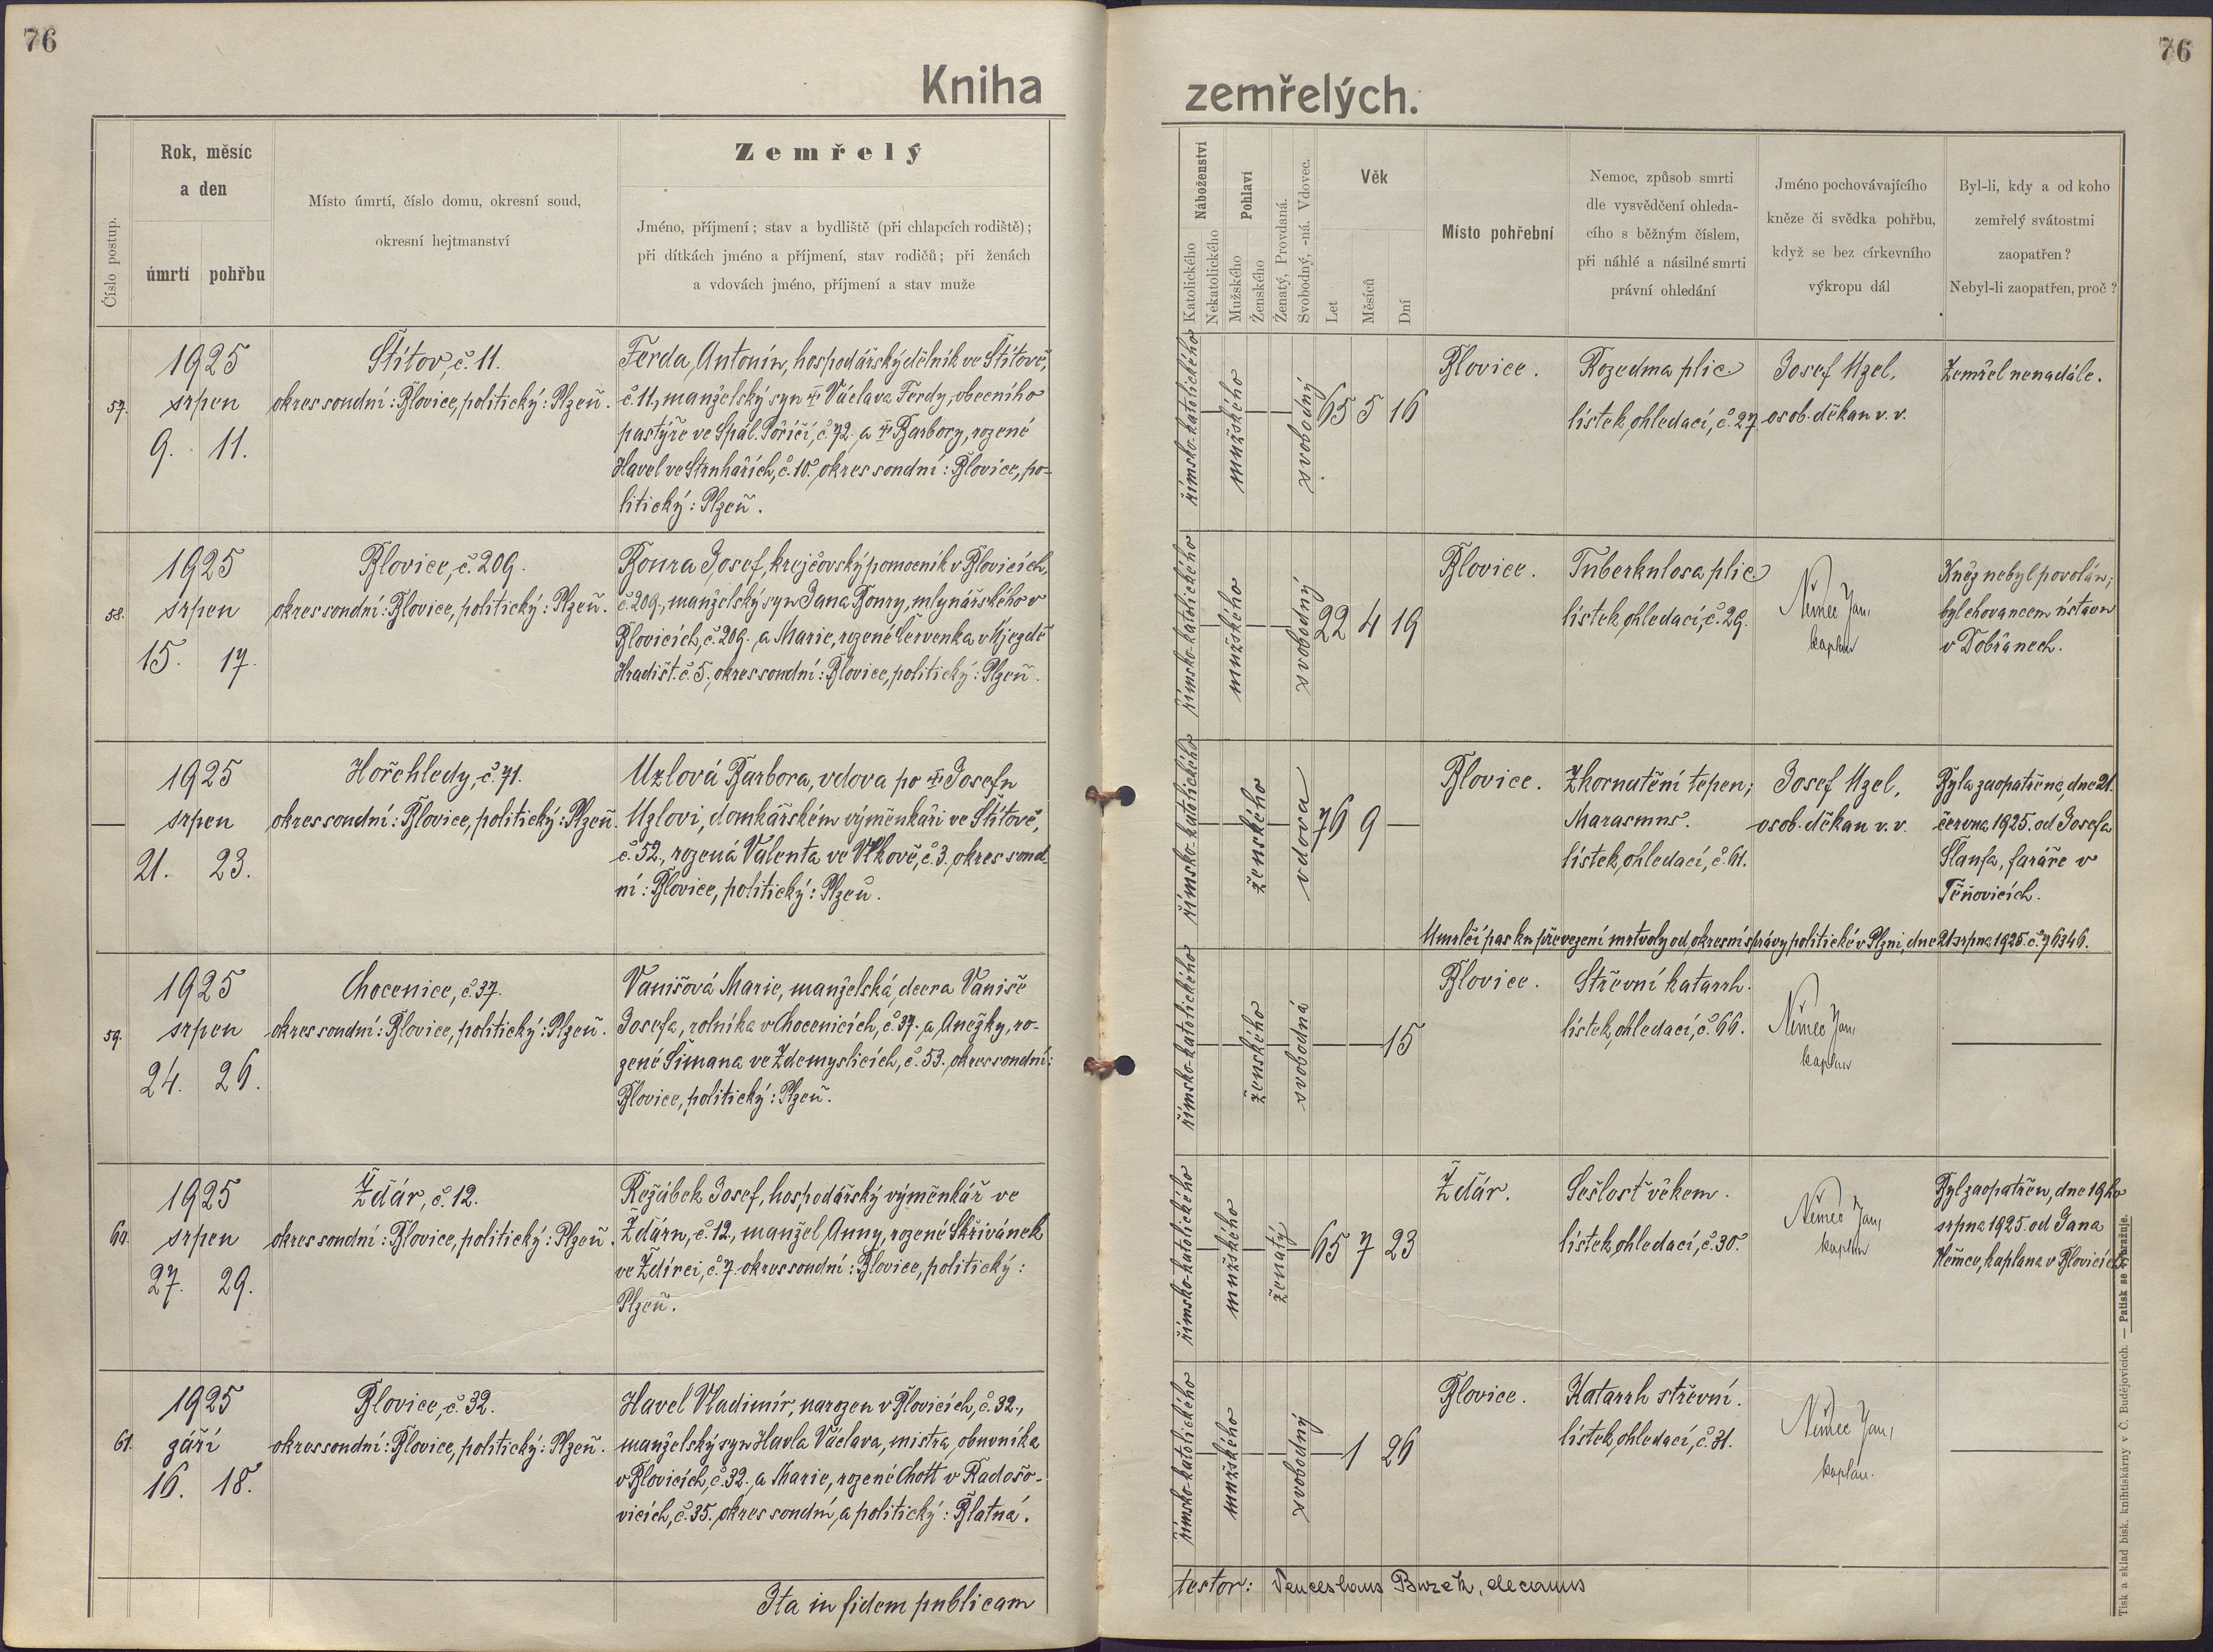 76
76
Kniha zemřelých.
Číslo postup.
Rok, měsíc
a den
úmrtí
pohřbu
Místo úmrtí, číslo domu, okresní soud,
okresní hejtmanství
Zemřelý
Jméno, příjmení; stav a bydliště (při chlapcích rodiště);
při dítkách jméno a příjmení, stav rodičů; při ženách
a vdovách jméno, příjmení a stav muže
Náboženství
Katolického
Nekatolického
Pohlaví
Mužského
Ženského
Ženatý, Provdaná.
Svobodný, -ná. Vdovec.
Věk
Let
Měsíců
Dní
Místo pohřební
Nemoc, způsob smrti
dle vysvědčení ohleda-
cího s běžným číslem,
při náhlé a násilné smrti
právní ohledání
Jméno pochovávajícího
kněze či svědka pohřbu,
když se bez církevního
výkropu dál
Byl-li, kdy a od koho
zemřelý svátostmi
zaopatřen?
Nebyl-li zaopatřen, proč?
57.
1925
srpen
9. 11.
Štítov, č. 11.
okres soudní: Blovice, politický: Plzeň.
Ferda, Antonín, hospodářský dělník ve Štítově,
č. 11, manželský syn † Václava Ferdy, obecního
pastýře ve Spál. Poříčí, č. 72. a † Barbory, rozené
Havel ve Strnhařích, č. 10. okres soudní: Blovice, po-
litický: Plzeň.
římsko-katolického
mužského
svobodný
65 5 16
Blovice.
Rozedma plic
lístek ohledací, č. 27.
Josef Uzel,
osob. děkan v. v.
Zemřel nenadále.
58.
1925
srpen
15. 17.
Blovice, č. 209.
okres soudní: Blovice, politický: Plzeň.
Boura Josef, krejčovský pomocník v Blovicích,
č. 209, manželský syn Jana Boury, mlynářského v
Blovicích, č. 209. a Marie, rozené Červenka v Újezdě
Hradišt. č. 5., okres soudní: Blovice, politický: Plzeň.
římsko-katolického
mužského
svobodný
22 4 19
Blovice.
Tuberkulosa plic
lístek ohledací, č. 29.
Němec Jan,
kaplan
Kněz nebyl povolán;
byl chovancem ústavu
v Dobřanech.
1925
srpen
21. 23.
Hořehledy, č. 71.
okres soudní: Blovice, politický: Plzeň.
Uzlová Barbora, vdova po † Josefu
Uzlovi, domkářském výměnkáři ve Štítově,
č. 52., rozená Valenta ve Vlkově, č. 3. okres soud-
ní: Blovice, politický: Plzeň.
římsko-katolického
ženského
vdova
76 9 —
Blovice.
Zkornatění tepen;
Marasmus.
lístek ohledací, č. 61.
Josef Uzel,
osob. děkan v. v.
Byla zaopatřena, dne 21.
června 1925. od Josefa
Šlaufa, faráře v
Těňovicích.
Umrlčí pas ku převezení mrtvoly od okresní správy politické v Plzni, dne 21. srpna 1925. č. 76346.
59.
1925
srpen
24. 26.
Chocenice, č. 37.
okres soudní: Blovice, politický: Plzeň.
Vanišová Marie, manželská, dcera Vaniše
Josefa, rolníka v Chocenicích, č. 37. a Anežky, ro-
zené Šimana ve Zdemyslicích, č. 53. okres soudní:
Blovice, politický: Plzeň.
římsko-katolického
ženského
svobodná
15
Blovice.
Střevní katarrh.
lístek ohledací, č. 66.
Němec Jan,
kaplan
60.
1925
srpen
27. 29.
Ždár, č. 12.
okres soudní: Blovice, politický: Plzeň.
Režábek Josef, hospodářský výměnkář ve
Ždáru, č. 12., manžel Anny, rozené Skřivánek
ve Ždírci, č. 7. okres soudní: Blovice, politický:
Plzeň.
římsko-katolického
mužského
ženatý
65 7 23
Ždár.
Sešlost věkem.
lístek ohledací, č. 30.
Němec Jan,
kaplan
Byl zaopatřen, dne 19ho
srpna 1925. od Jana
Němce, kaplana v Blovicích.
61.
1925
září
16. 18.
Blovice, č. 32.
okres soudní: Blovice, politický: Plzeň.
Havel Vladimír, narozen v Blovicích, č. 32.,
manželský syn Havla Václava, mistra obuvníka
v Blovicích, č. 32. a Marie, rozené Chott v Radošo-
vicích, č. 35. okres soudní, a politický: Blatná.
římsko-katolického
mužského
svobodný
1 26
Blovice.
Katarrh střevní.
lístek ohledací, č. 31.
Němec Jan,
kaplan.
Ita in fidem publicam
testor: Venceslaus Burek, decanus
Tisk a sklad bisk. knihtiskárny v Č. Budějovicích. — Patisk se vyhražuje.